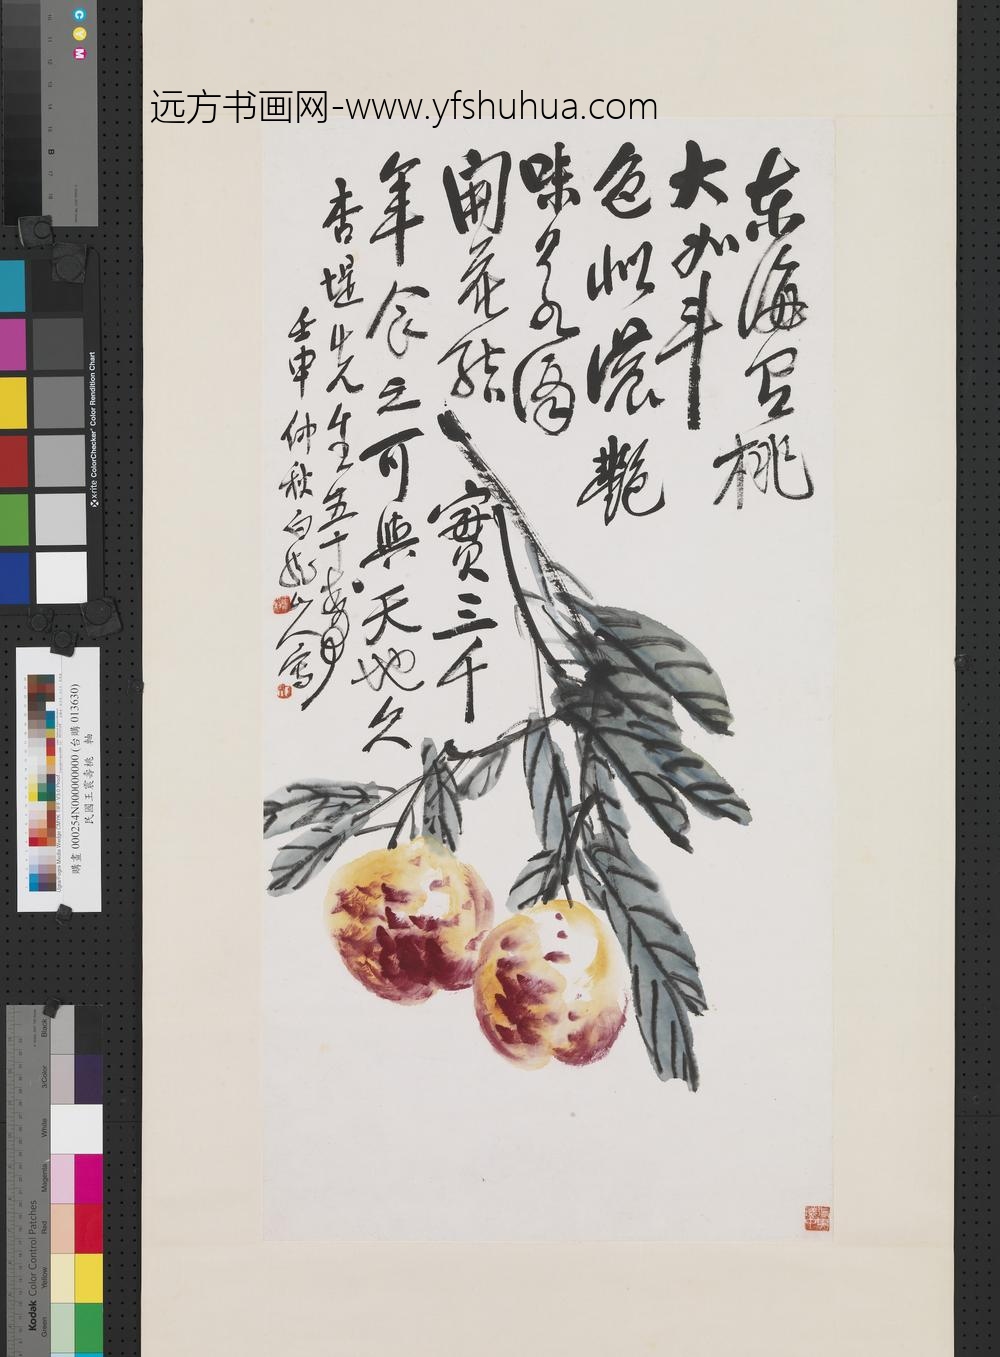 远方书画网-www.yfshuhua.com
东海有桃
大如斗
色似濃艷
味若酒
開花結
實三千
年食之可與天地久
杏堤先生五十壽
壬申仲秋白龍山人寫
x-rite ColorChecker Color Rendition Chart
購畫 000254N000000000 (台購 013630)
民國王震壽桃 軸
Kodak Color Control Patches
Black
3/Color
White
Magenta
Red
Yellow
Green